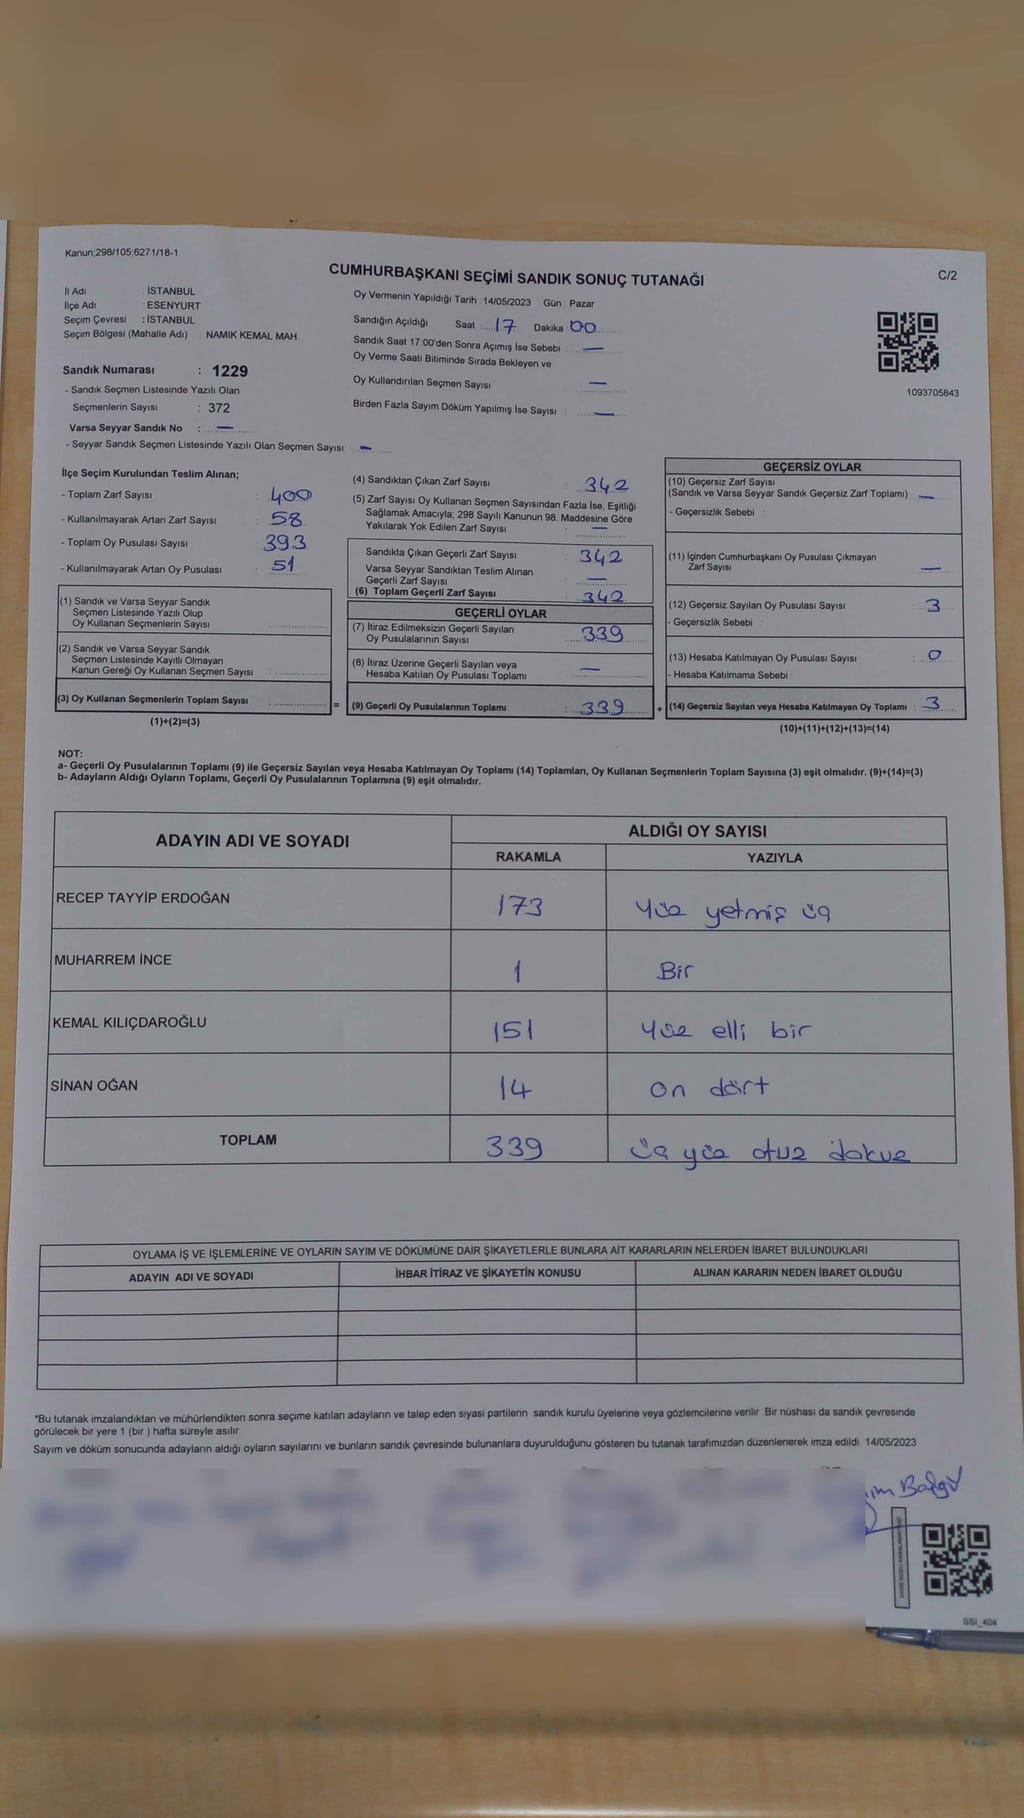 Kanun;298/105;6271/18-1
CUMHURBAŞKANI SEÇİMİ SANDIK SONUÇ TUTANAĞI
C/2
İl Adı : İSTANBUL
İlçe Adı : ESENYURT
Seçim Çevresi : İSTANBUL
Seçim Bölgesi (Mahalle Adı) : NAMIK KEMAL MAH.
Sandık Numarası : 1229
- Sandık Seçmen Listesinde Yazılı Olan
Seçmenlerin Sayısı : 372
Varsa Seyyar Sandık No : —
- Seyyar Sandık Seçmen Listesinde Yazılı Olan Seçmen Sayısı: —
Oy Vermenin Yapıldığı Tarih :14/05/2023 Gün : Pazar
Sandığın Açıldığı Saat : 17 Dakika : 00
Sandık Saat 17:00'den Sonra Açımış İse Sebebi : —
Oy Verme Saati Bitiminde Sırada Bekleyen ve
Oy Kullandırılan Seçmen Sayısı : —
Birden Fazla Sayım Döküm Yapılmış İse Sayısı : —
1093705843
İlçe Seçim Kurulundan Teslim Alınan;
- Toplam Zarf Sayısı : 400
- Kullanılmayarak Artan Zarf Sayısı : 58
- Toplam Oy Pusulası Sayısı : 393
- Kullanılmayarak Artan Oy Pusulası : 51
(1) Sandık ve Varsa Seyyar Sandık
Seçmen Listesinde Yazılı Olup
Oy Kullanan Seçmenlerin Sayısı :
(2) Sandık ve Varsa Seyyar Sandık
Seçmen Listesinde Kayıtlı Olmayan
Kanun Gereği Oy Kullanan Seçmen Sayısı :
(3) Oy Kullanan Seçmenlerin Toplam Sayısı :
(1)+(2)=(3)
=
(4) Sandıktan Çıkan Zarf Sayısı : 342
(5) Zarf Sayısı Oy Kullanan Seçmen Sayısından Fazla İse, Eşitliği
Sağlamak Amacıyla; 298 Sayılı Kanunun 98. Maddesine Göre
Yakılarak Yok Edilen Zarf Sayısı : —
Sandıkta Çıkan Geçerli Zarf Sayısı : 342
Varsa Seyyar Sandıktan Teslim Alınan
Geçerli Zarf Sayısı : —
(6) Toplam Geçerli Zarf Sayısı : 342
GEÇERLİ OYLAR
(7) İtiraz Edilmeksizin Geçerli Sayılan
Oy Pusulalarının Sayısı : 339
(8) İtiraz Üzerine Geçerli Sayılan veya
Hesaba Katılan Oy Pusulası Toplamı : —
(9) Geçerli Oy Pusulalarının Toplamı : 339
+
GEÇERSİZ OYLAR
(10) Geçersiz Zarf Sayısı
(Sandık ve Varsa Seyyar Sandık Geçersiz Zarf Toplamı) : —
- Geçersizlik Sebebi :
(11) İçinden Cumhurbaşkanı Oy Pusulası Çıkmayan
Zarf Sayısı : —
(12) Geçersiz Sayılan Oy Pusulası Sayısı : 3
- Geçersizlik Sebebi :
(13) Hesaba Katılmayan Oy Pusulası Sayısı : 0
- Hesaba Katılmama Sebebi :
(14) Geçersiz Sayılan veya Hesaba Katılmayan Oy Toplamı : 3
(10)+(11)+(12)+(13)=(14)
NOT:
a- Geçerli Oy Pusulalarının Toplamı (9) ile Geçersiz Sayılan veya Hesaba Katılmayan Oy Toplamı (14) Toplamları, Oy Kullanan Seçmenlerin Toplam Sayısına (3) eşit olmalıdır. (9)+(14)=(3)
b- Adayların Aldığı Oyların Toplamı, Geçerli Oy Pusulalarının Toplamına (9) eşit olmalıdır.
ADAYIN ADI VE SOYADI
ALDIĞI OY SAYISI
RAKAMLA YAZIYLA
RECEP TAYYİP ERDOĞAN 173 Yüz yetmiş üç
MUHARREM İNCE 1 Bir
KEMAL KILIÇDAROĞLU 151 Yüz elli bir
SİNAN OĞAN 14 On dört
TOPLAM 339 Üç yüz otuz dokuz
OYLAMA İŞ VE İŞLEMLERİNE VE OYLARIN SAYIM VE DÖKÜMÜNE DAİR ŞİKAYETLERLE BUNLARA AİT KARARLARIN NELERDEN İBARET BULUNDUKLARI
ADAYIN ADI VE SOYADI İHBAR İTİRAZ VE ŞİKAYETİN KONUSU ALINAN KARARIN NEDEN İBARET OLDUĞU
*Bu tutanak imzalandıktan ve mühürlendikten sonra seçime katılan adayların ve talep eden siyasi partilerin sandık kurulu üyelerine veya gözlemcilerine verilir. Bir nüshası da sandık çevresinde
görülecek bir yere 1 (bir ) hafta süreyle asılır.
Sayım ve döküm sonucunda adayların aldığı oyların sayılarını ve bunların sandık çevresinde bulunanlara duyurulduğunu gösteren bu tutanak tarafımızdan düzenlenerek imza edildi. 14/05/2023
SSI_404